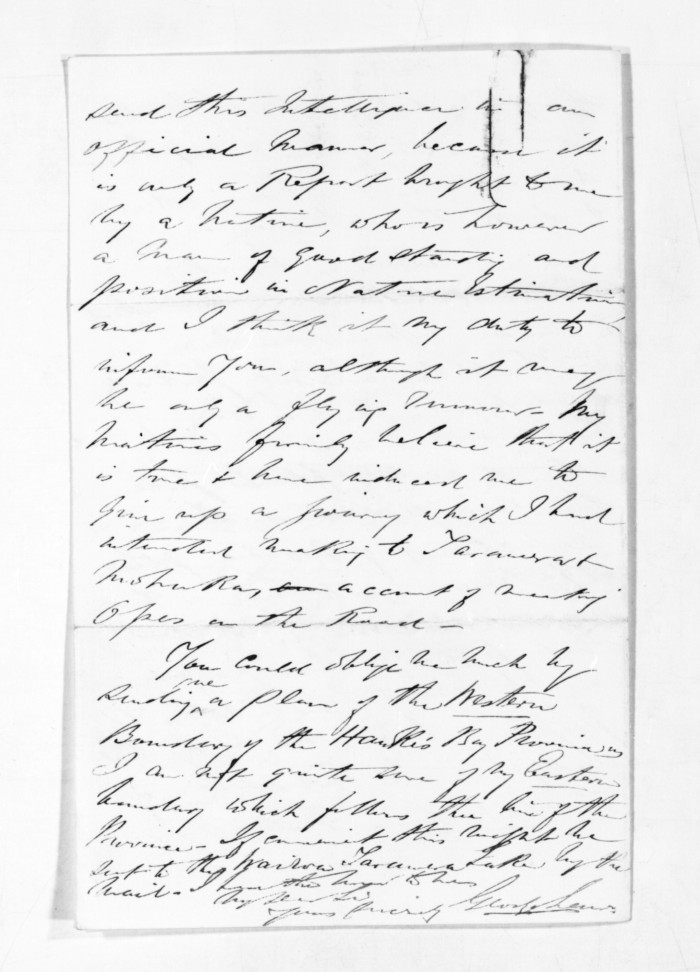 send this Intelligence in an
official manner, because it
is only a Report brought to me
by a Native, who is however
a man of good standing and
position in Native Estimation
and I think it my duty to
inform You, although it may
be only a flying rumour - My
Natives firmly believe that it
is true & have induced me to
give up a journey which I had
intended making to Tarawera &
Mohaka, on account of meeting
Opes on the Road -
You could oblige me much by
sending me a plan of the Western
Boundary of the Hawke's Bay Province, as
I am not quite sure of my Eastern
boundary which follows the line of the
Province - If convenient this might be
sent to the Wairoa Tarawera Lake by the
mail - I have the honor to be
My dear Sir
Yours sincerely